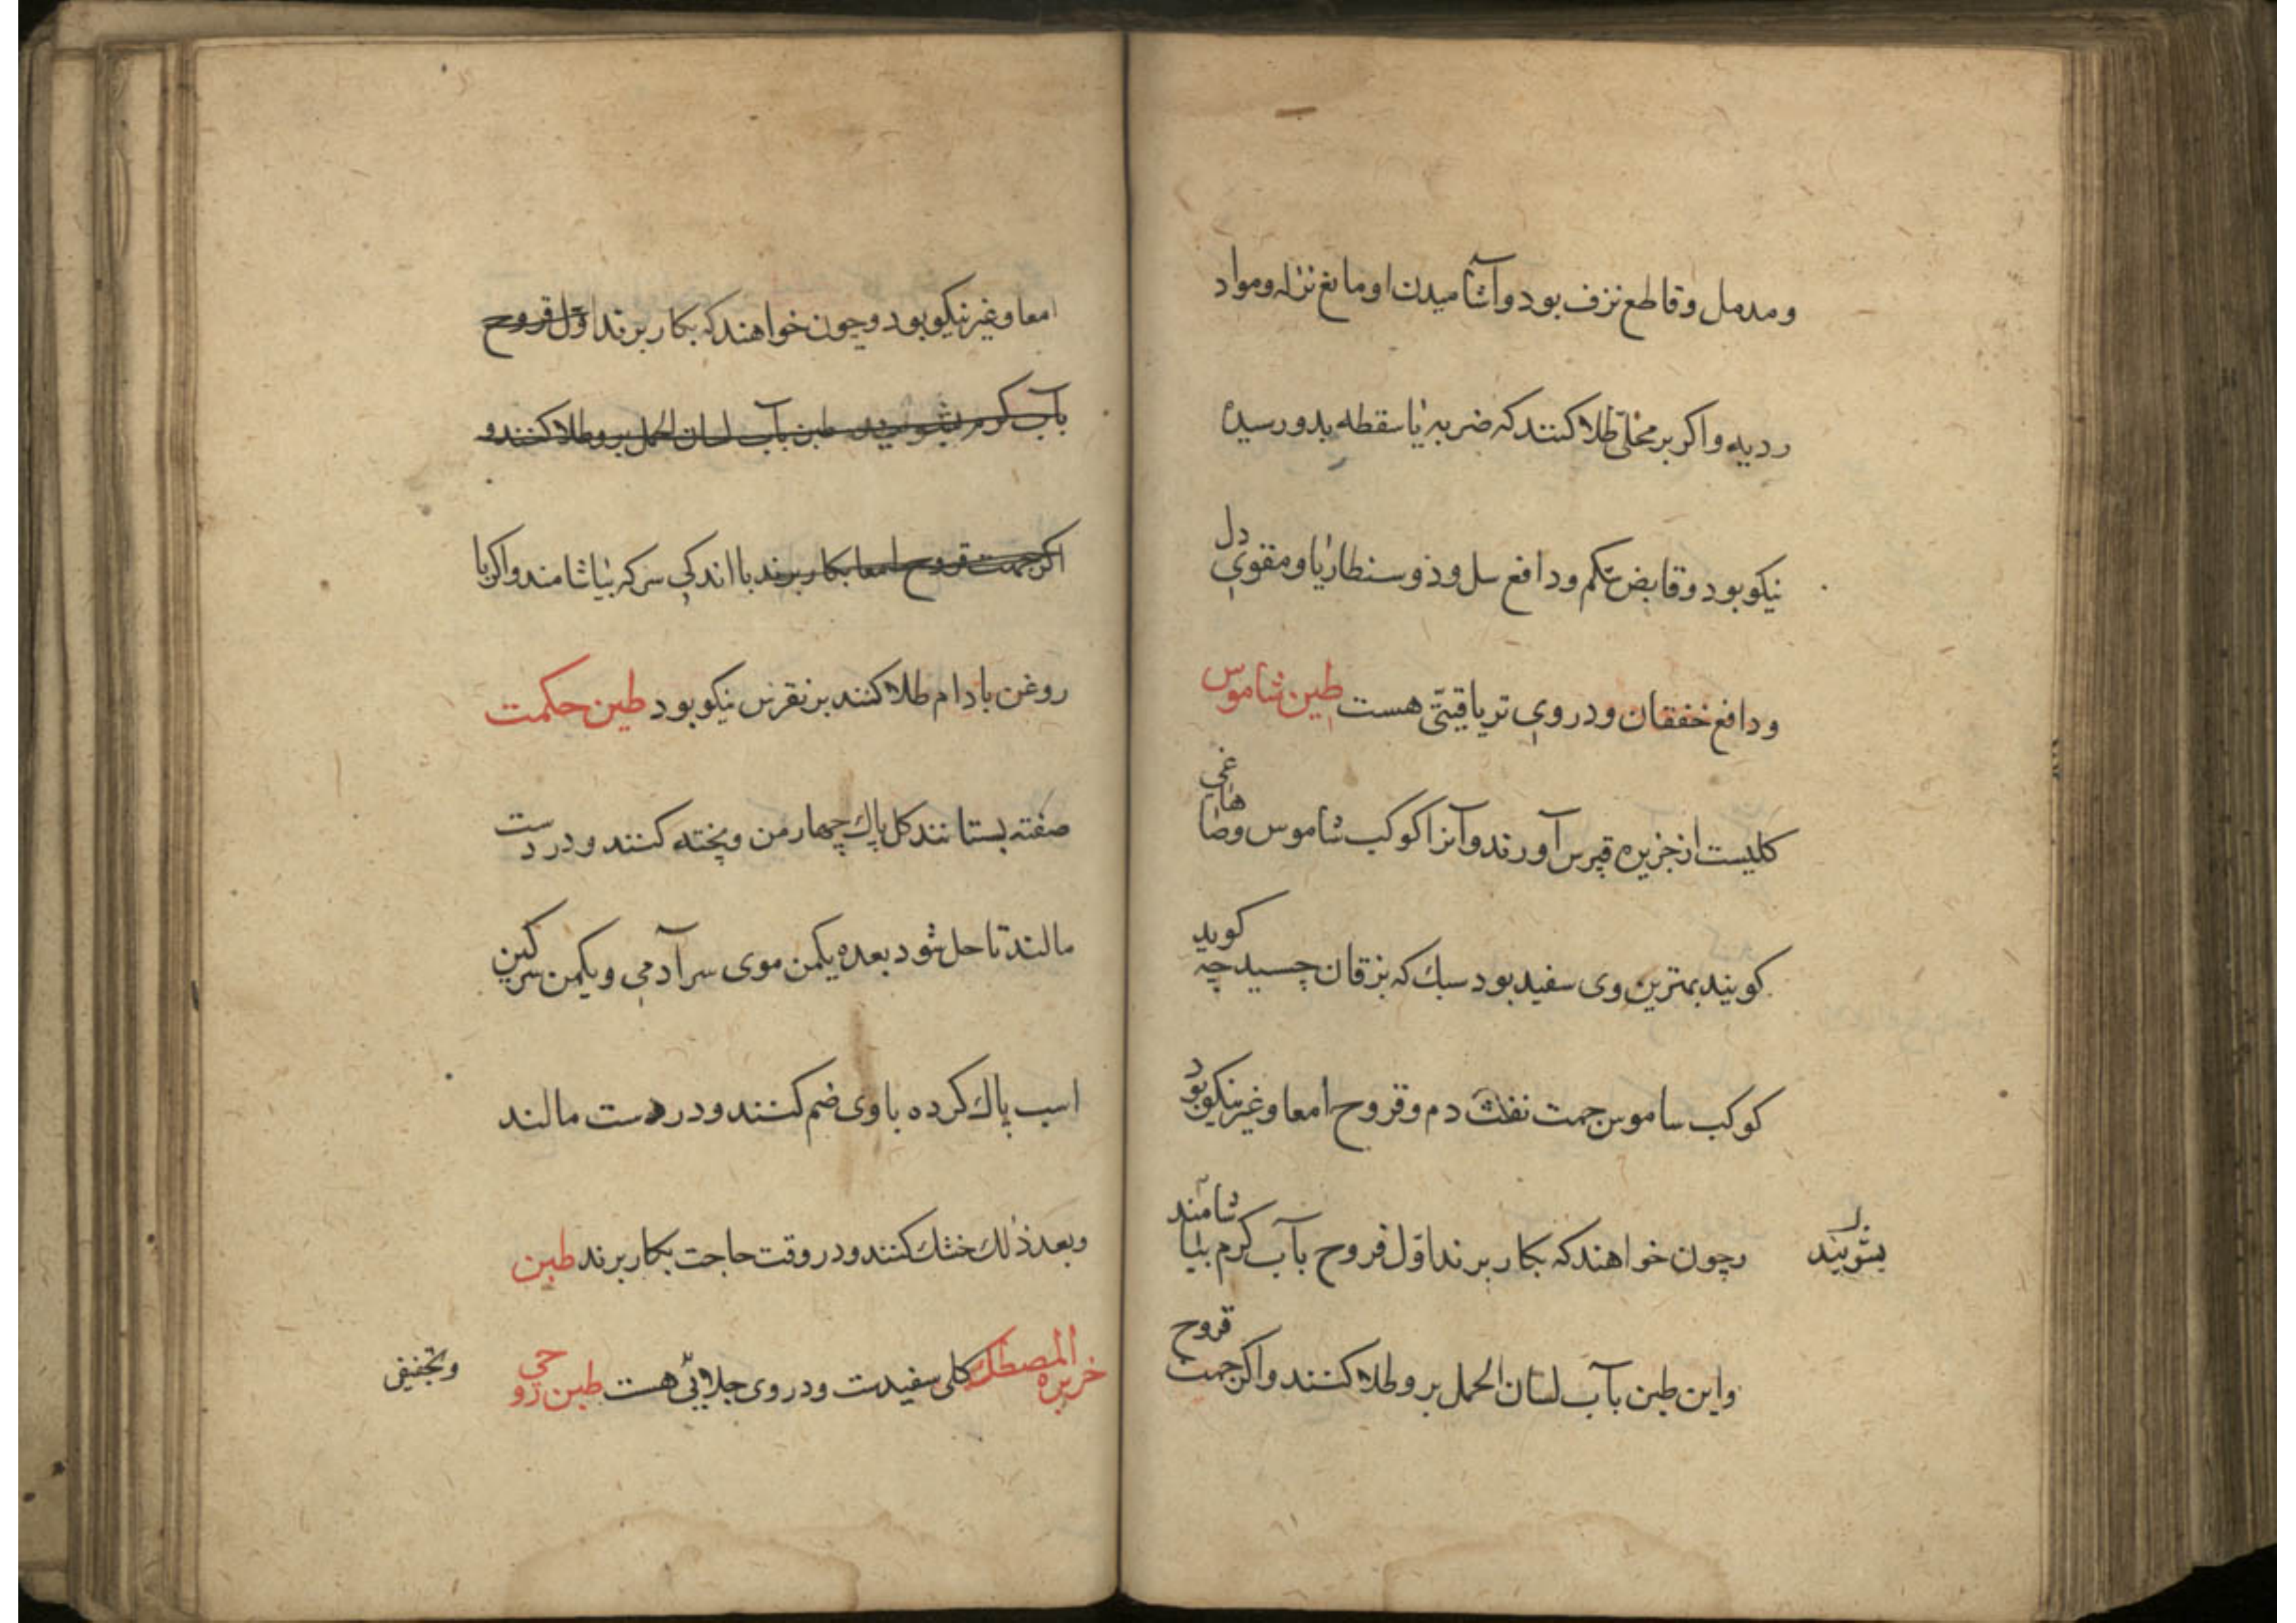 ومدمل وقاطع نزف بود وآشامیدن او مانع نزله ومواد
ردیه واکر بر محلی طلا کنند که ضربه یا سقطه بدو رسیده
نیکو بود وقابض شکم ودافع سل وذوسنطاریا ومقوی دل
ودافع خفقان ودر وی تریاقیتی هست طین شاموس
کلیست از جزیره قبرس آورند وآنرا کوکب شاموس
کویند بهترین وی سفید بود سبك که بزفان چسبد چه کوید
کوکب ساموس جهت نفث دم وقروح امعا وغیر نیکو بود
وچون خواهند که بکار برند اول قروح بآب کرم بیاشامند
بشویند
واین طین بآب لسان الحمل برو طلا کنند واکر جهت قروح
امعا وغیر نیکو بود وچون خواهند که بکار برند اول قروح
بآب کرم بشویند طین بآب لسان الحمل برو طلا کنند و
اکر جهت قروح امعا بکار برند با اندکی سرکه بیاشامند واکر با
روغن بادام طلا کنند بر نقرس نیکو بود طین حکمت
صفته بستانند کل پاك چهار من وپخته کنند ودر دست
مالند تا حل شود بعده یکمن موی سر آدمی ویکمن سرکین
اسب پاك کرده با وی ضم کنند ودر دست مالند
وبعد ذلك خشك کنند ودر وقت حاجت بکار برند طین
جزیره المصطکی کلی سفیدست ودر وی جلائی هست طین رو حی
وتجفیفی